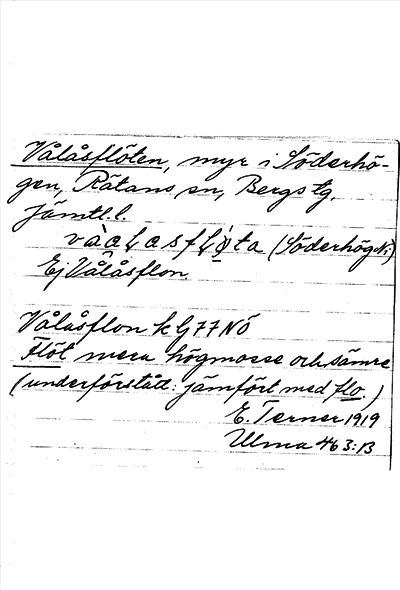 Vålåsflöten, myr i Söderhö-
gen, Rätans sn, Bergs tg.
Jämtl. l.
(Söderhögen)
Ej Vålåsflon.
Vålåsflon k G77NÖ
Flöt mera högmosse och sämre
(underförstått: jämfört med flo)
E. Terner 1919
Ulma 463:13